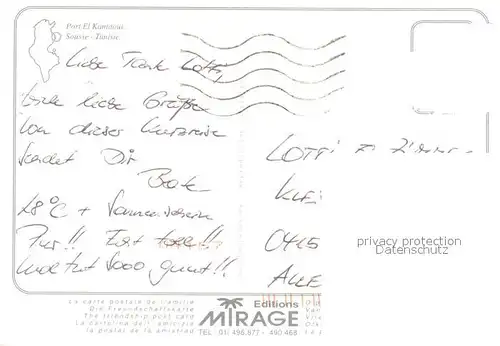 Port El Kantaoui
Sousse - Tunisie
Liebe Tante Lotti,
viele liebe Grüße
von dieser Kurzreise
sendet Dir
Beate
28°C + Sonnenschein
Pur!! Echt toll!!
und tut sooo gut!!
LOTTI
KLE
0415
ALLE
privacy protection
Datenschutz
La carte postale de l'amitié
Die Freundschaftskarte
The friendship post card
La cartolina dell' amicizia
la postal de la amistad
Editions
MIRAGE
TEL : (01) 496.677 - 490.468